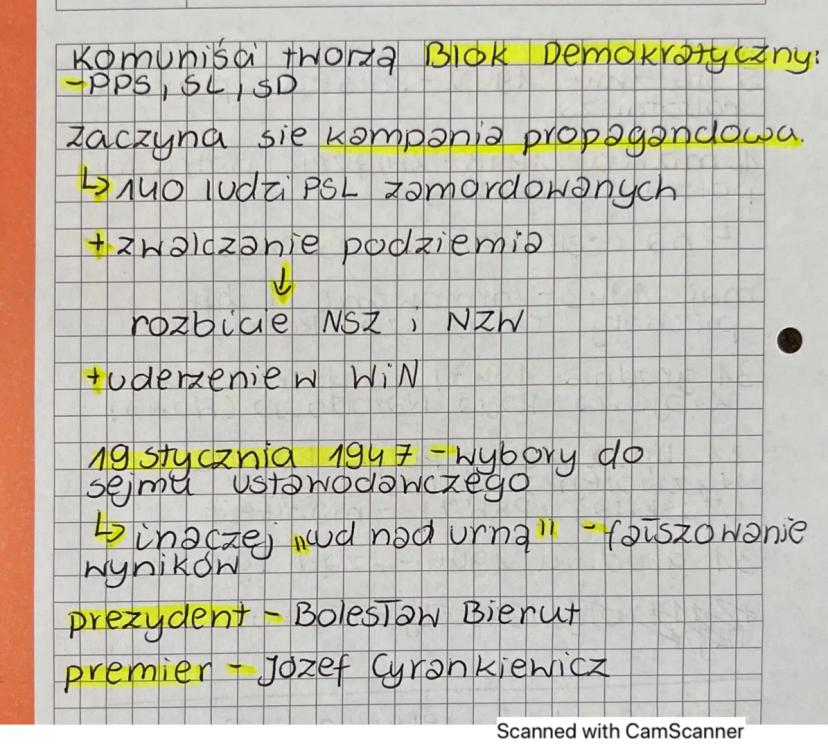 Komuniści tworzą Blok Demokratyczny:
-PPS, SL, SD
zaczyna sie kampania propagandowa.
↳ 140 ludzi PSL zamordowanych
+ zwalczanie podziemia
↓
rozbicie NSZ i NZW
+ uderzenie w WiN
19 stycznia 1947 - wybory do
sejmu ustawodawczego
↳ inaczej „cud nad urną" - fałszowanie
wyników
prezydent - Bolesław Bierut
premier - Józef Cyrankiewicz
Scanned with CamScanner